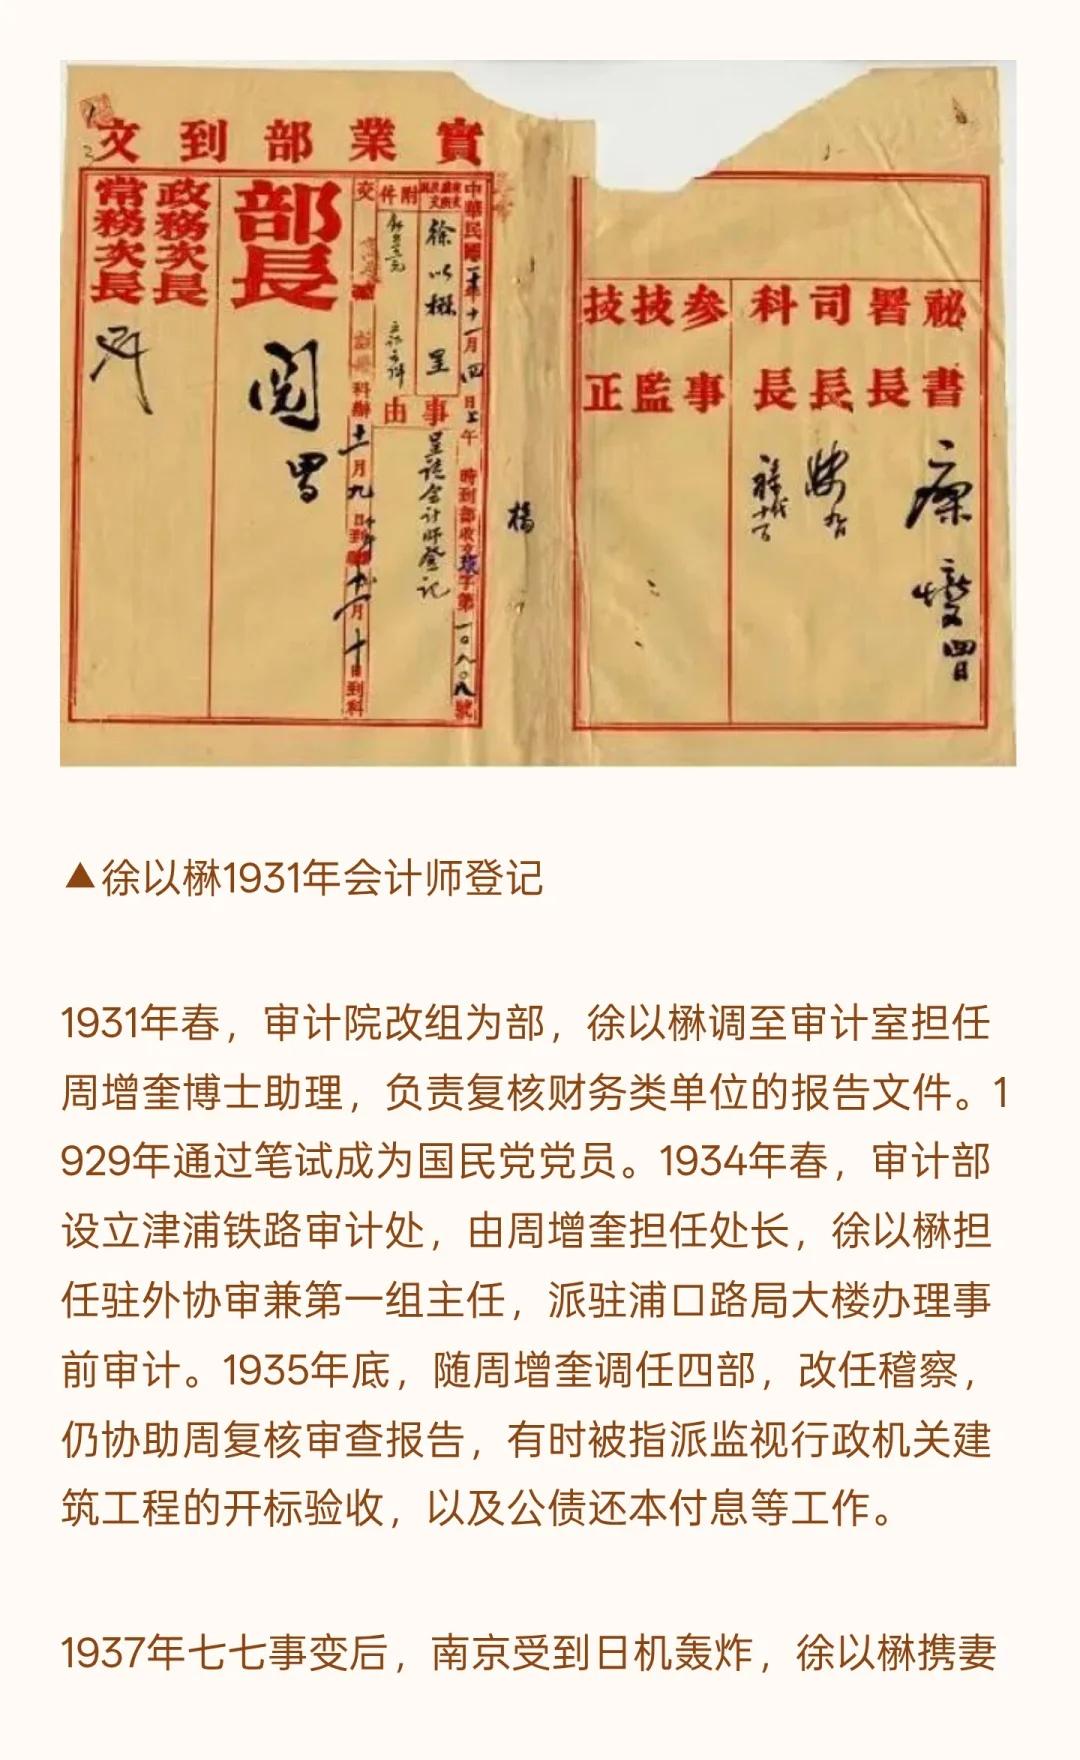 實業部到文
秘書
署長
司長
科長
参事
技監
技正
中華民國二十年十一月四日上午 時到部收文 字第一〇八〇八號
徐以楙 呈
事由
呈請会计师登记
附件
交
科辦
十一月九日到
十一月十日到科
部長
閱
政務次長
常務次長
楊
▲徐以楙1931年会计师登记
1931年春，审计院改组为部，徐以楙调至审计室担任
周增奎博士助理，负责复核财务类单位的报告文件。1
929年通过笔试成为国民党党员。1934年春，审计部
设立津浦铁路审计处，由周增奎担任处长，徐以楙担
任驻外协审兼第一组主任，派驻浦口路局大楼办理事
前审计。1935年底，随周增奎调任四部，改任稽察，
仍协助周复核审查报告，有时被指派监视行政机关建
筑工程的开标验收，以及公债还本付息等工作。
1937年七七事变后，南京受到日机轰炸，徐以楙携妻